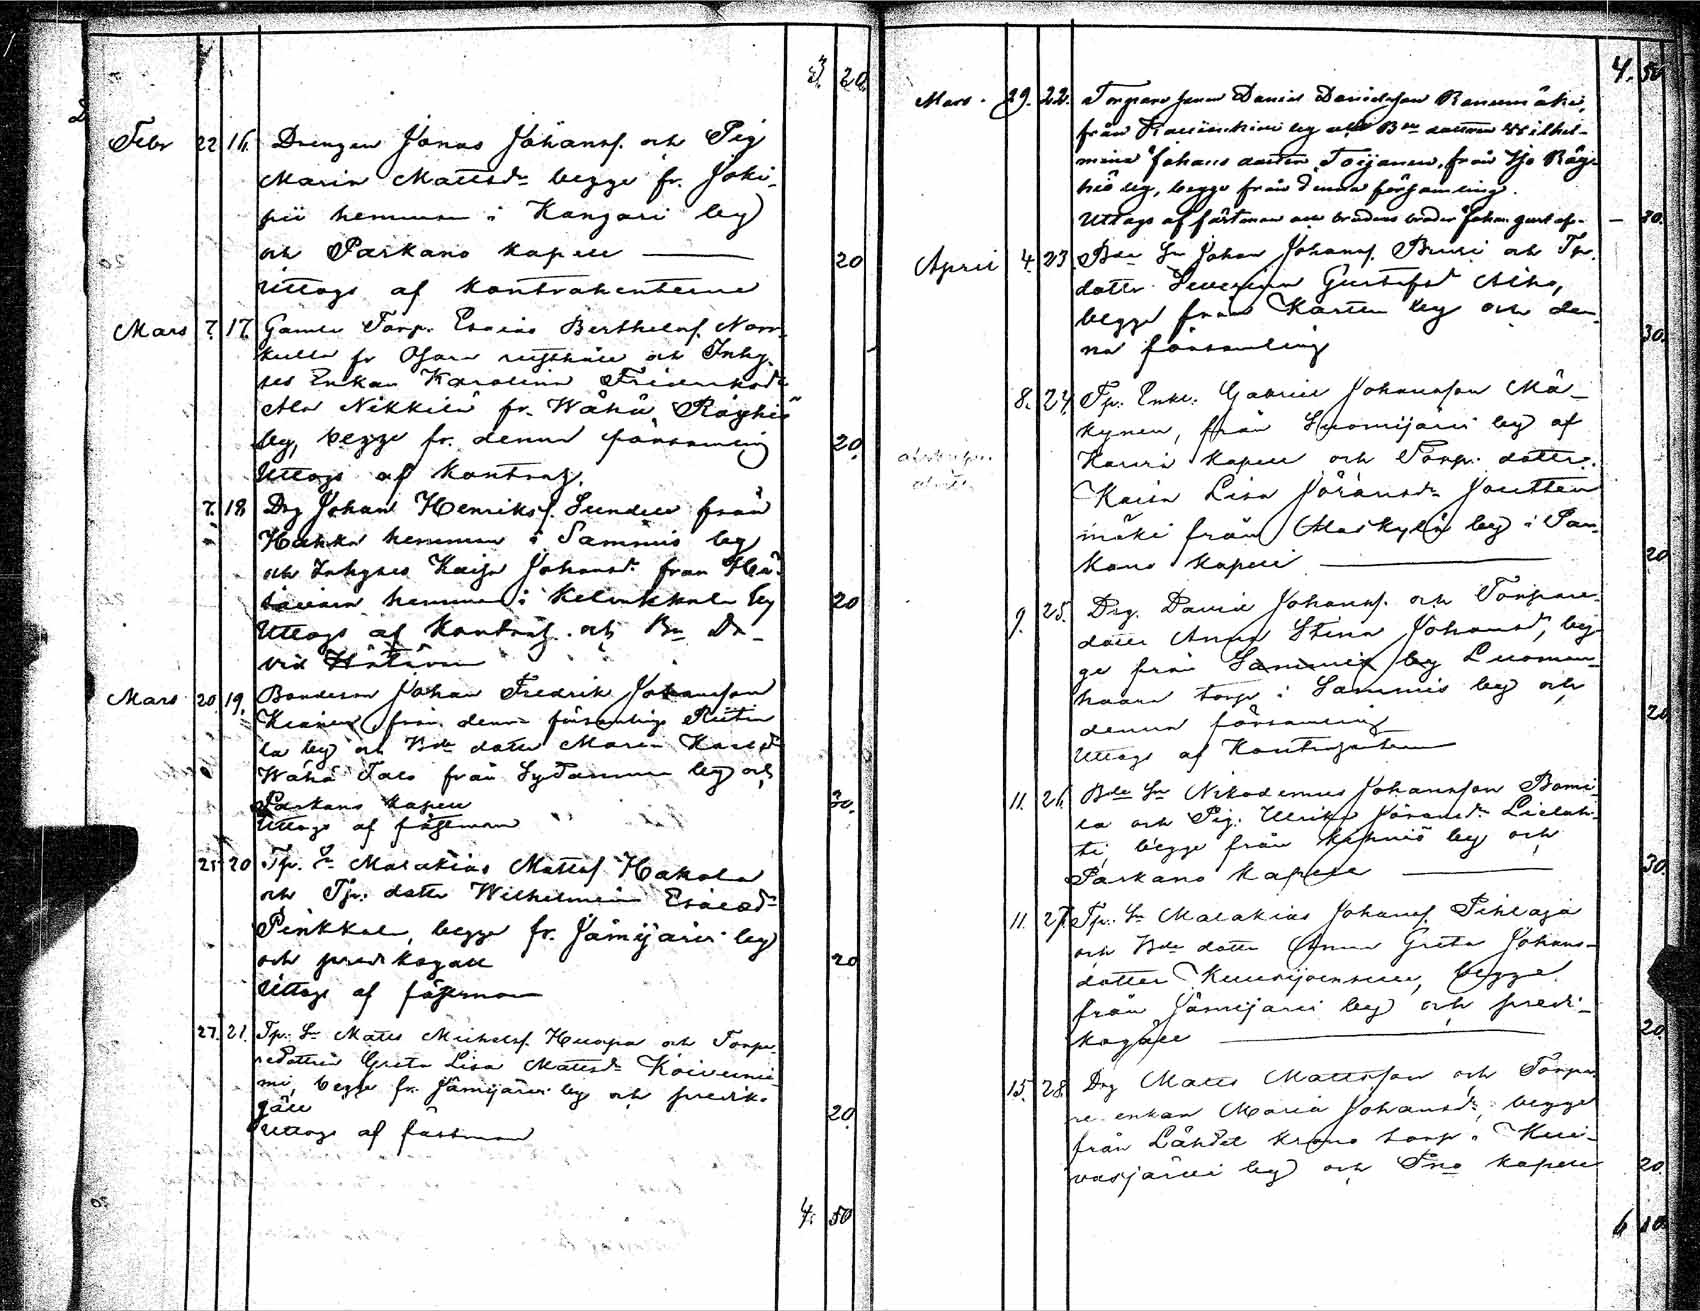 3. 20.
Febr 22 16. Drengen Jonas Johansf. och Pig
Maria Mattsdr begge fr. Joki-
pii hemman i Kangari by
och Parkano kapell — 20
Uttogs af kontrahenterne
Mars 7. 17. Gamle Torp. Esaias Berthelsf. Norr-
kulla fr rusthåll och Inhy.
ses Enkan Karolina Fredriksdr
Ala Nikkilä fr. Wähä Röyhiö
by, begge fr. denna församling 20.
Uttogs af kontrah.
7. 18 Drg Johan Henriksf. Sundell från
Hakka hemman i Sammis by
och Inhyses Kaisa Johansdr från Hä-
hemman i Kelvukkala by 20
Uttogs af Kontrah. och Bn Da-
vid
Mars 20. 19. Bondeson Johan Fredrik Johansson
från denna församling
la by och Bde dotter Maria Karlsdr
Wähä Talo från Sydänmaa by och
Parkano kapell 30.
Uttogs af fästeman
21. 20 Tp. Sn Malakias Mattsf. Hakala
och Tp. dotter Wilhelmina Esaiædr
Pinkkala, begge fr. Jämijärvi by
och predikogäll 20
Uttogs af fästeman
27. 21. Tp. Sn Matts Michelsf. Huopa och Torpa-
redottern Greta Lisa Mattsdr Koivunie-
mi, begge fr. Jämijärvi by och prediko-
gäll 20
Uttogs af fästman
4. 50
4. 50
Mars. 29. 22. Torpare sonen Daniel Danielsson Ransumäki,
från by och Bde dottren Wilhel-
mina Johansdotter Torjanen, från Yjo Röyh-
hiö by, begge från denna församling.
Uttogs af fästman och brudens broder Johan Gustaf — 30.
April 4. 23. Bde Sn Johan Johansf. Bruri och Tp.
dotter Severina Gustafsdr Alho,
begge från Karttu by och den-
na församling 30.
8. 24. Tp. Enkl. Gabriel Johansson Mä-
kynen, från Suomijärvi by af
Karvia kapell och Torp. dotter.
Kaisa Lisa Jöransdr Joutten
mäki från Alaskylä by i Par-
kano kapell — 20
9. 25. Drg. David Johansf. och Torpare-
dotter Anna Stina Johansdr, beg-
ge från Sammis by Luoman-
haara torp i Sammis by och
denna församling 20
Uttogs af Kontrahenterne
11. 26. Bde Sn Nikodemus Johansson Bomi-
la och Pig. Ulrika Jöransdr Lielah-
ti, begge från by och
Parkano kapell — 30.
11. 27. Tp. Sn Malakias Johansf. Pihlaja
och Bde dotter Anna Greta Johans-
dotter Kuusijoensuu, begge
från Jämijärvi by och predi-
kogäll — 20.
15. 28. Drg Matts Mattsson och Torpa-
re enkan Maria Johansdr, begge
från Lähdet krono torp i Kui-
vasjärvi by och Pno kapell 20.
6 10